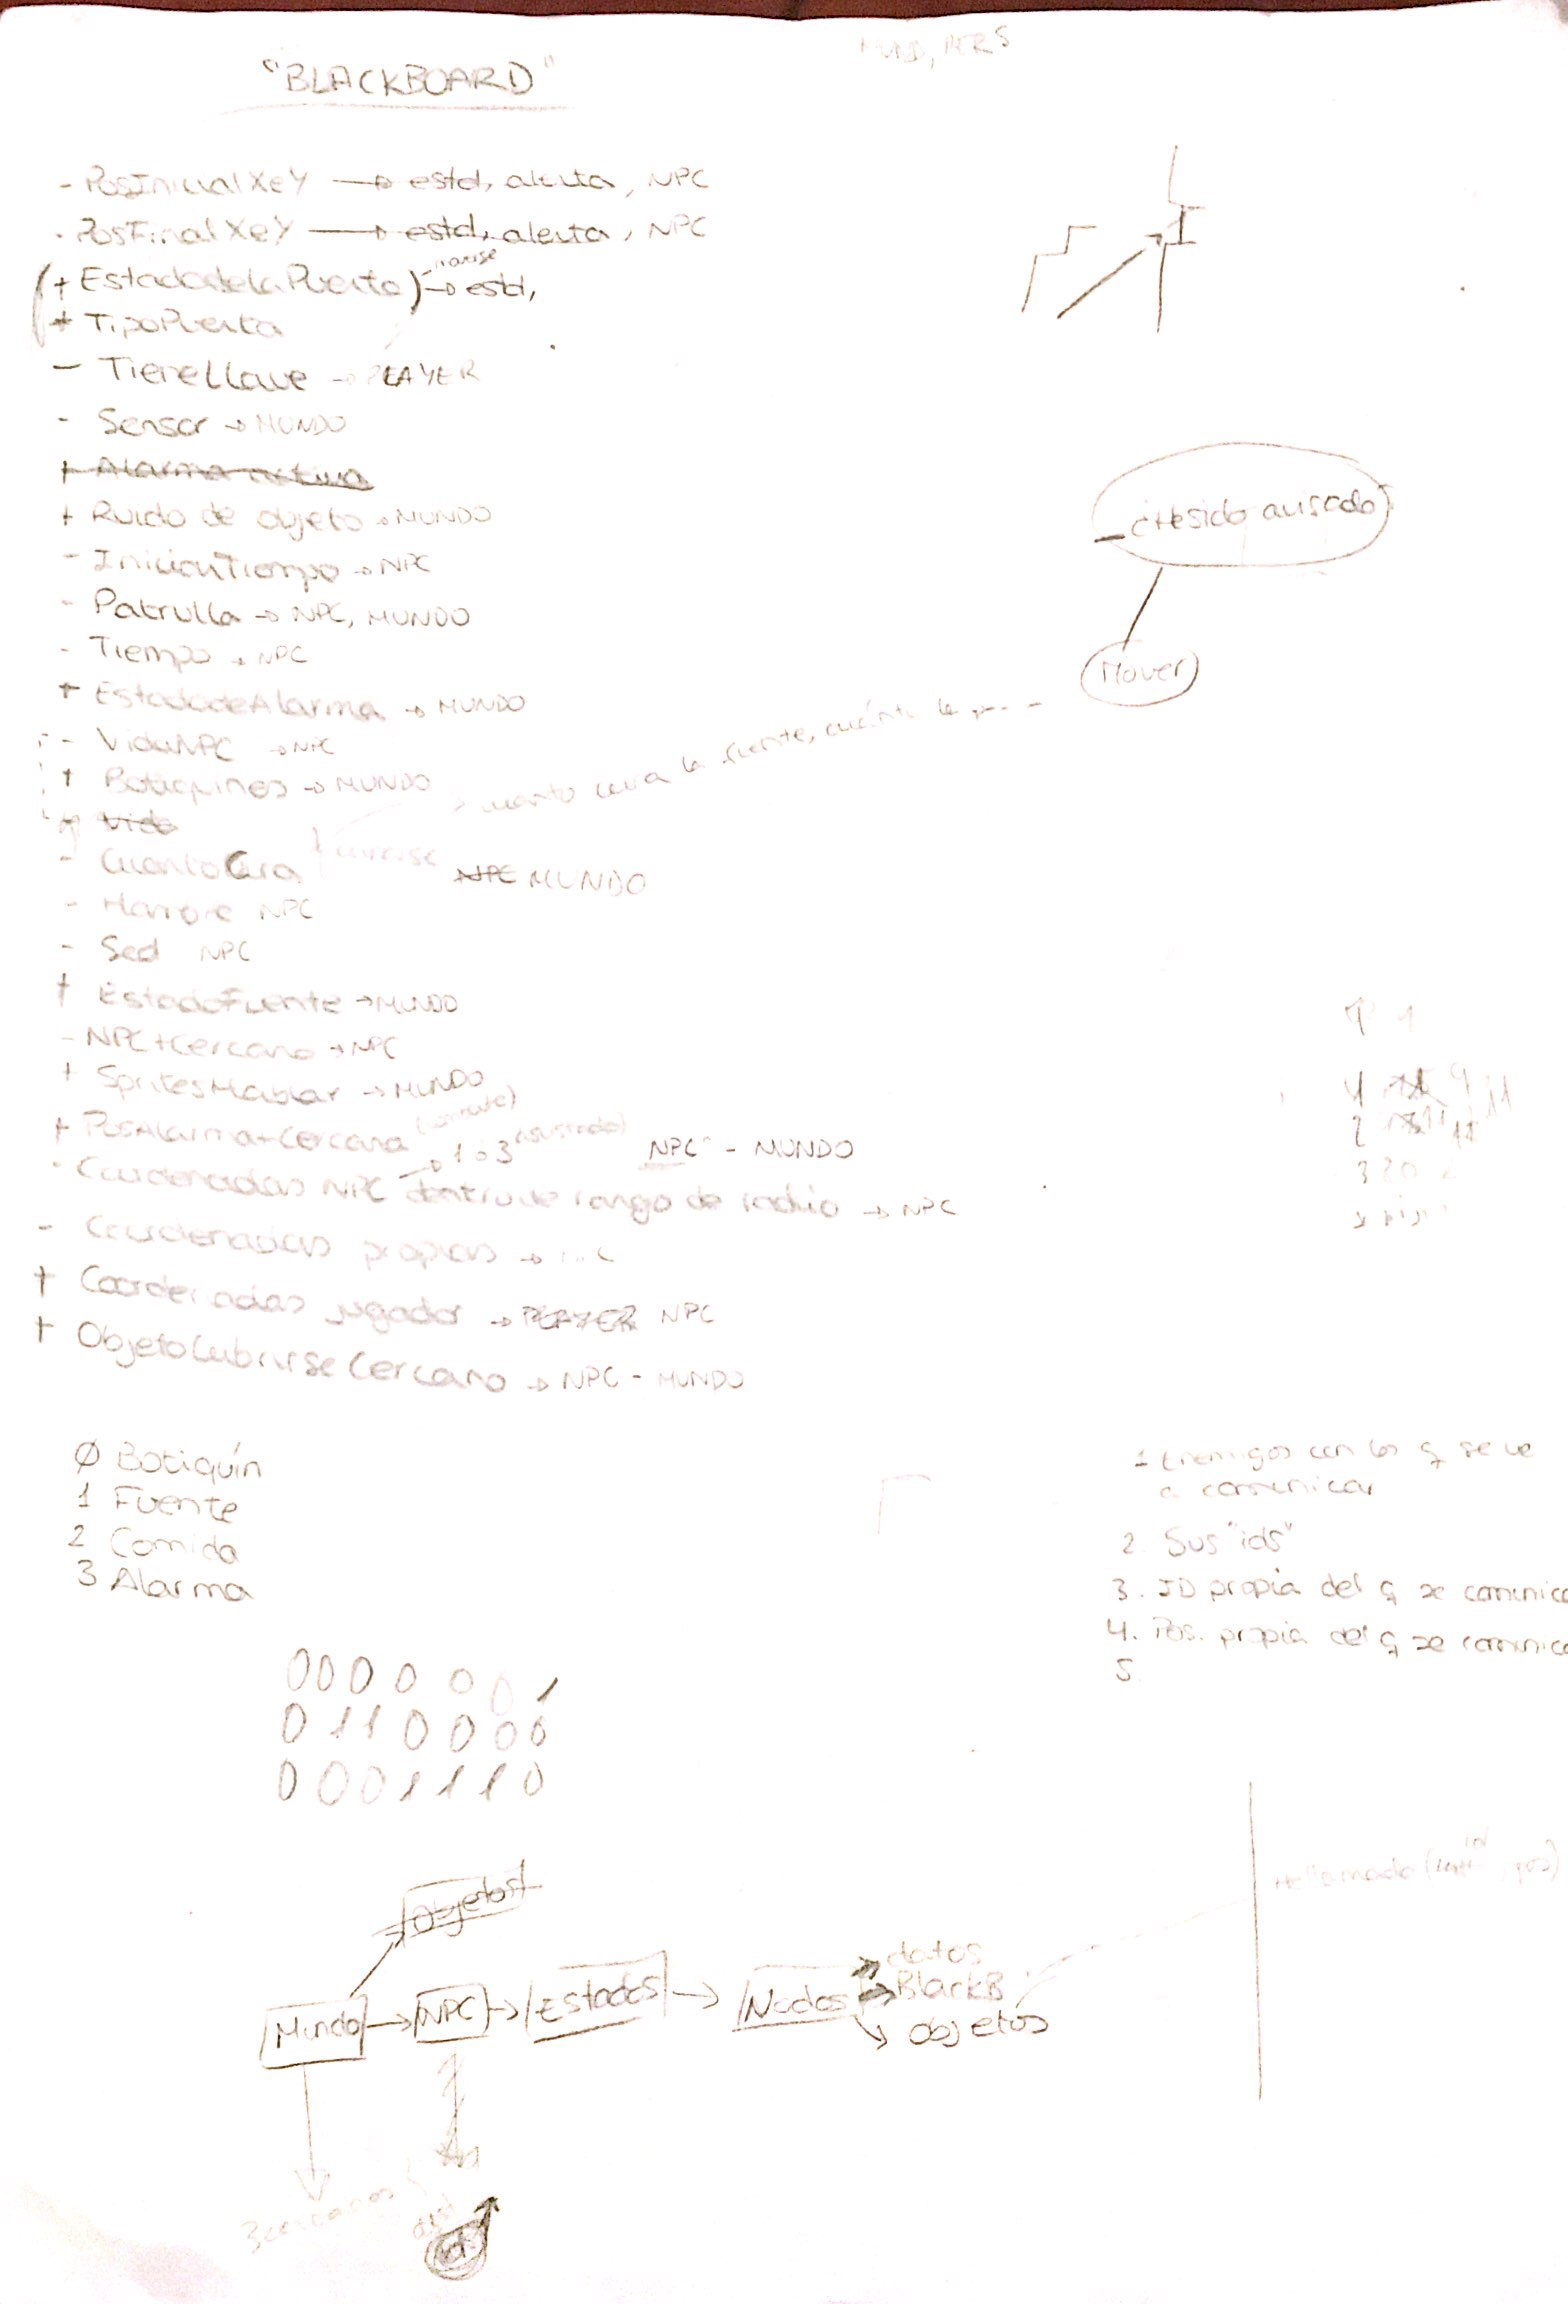 "BLACKBOARD"
- PosInicialXeY → estd, alerta, NPC
- PosFinalXeY → estd, alerta, NPC
(+ EstadodelaPuerta) → estd,
+ TipoPuerta
- TieneLlave → PLAYER
- Sensor → MUNDO
+ Alarma activa
+ Ruido de objeto → MUNDO
- IniciarTiempo → NPC
- Patrulla → NPC, MUNDO
- Tiempo → NPC
+ EstadodeAlarma → MUNDO
- VidaNPC → NPC
+ Botiquines → MUNDO
- Vida
→ cuanto cura la fuente, cuánto le
- CuantoCura curarse NPC MUNDO
- Hambre NPC
- Sed NPC
+ EstadoFuente → MUNDO
- NPC+Cercano → NPC
+ SpritesHablar → MUNDO
+ PosAlarma+Cercana → 1 o 3 (asustado) NPC - MUNDO
- Coordenadas NPC dentro de rango de radio → NPC
- Coordenadas propias →
+ Coordenadas jugador → PLAYER NPC
+ ObjetoCubrirseCercano → NPC - MUNDO
¿He sido avisado?
Mover
Ø Botiquín
1 Fuente
2 Comida
3 Alarma
1 Enemigos con los q se va
a comunicar
2. Sus "ids"
3. ID propia del q se comunica
4. Pos. propia del q se comunica
5.
0 0 0 0 0 0 1
0 1 1 0 0 0 0
0 0 0 1 1 1 0
Objetos
Mundo → NPC → Estados → Nodos
→ datos
→ BlackB
→ objetos